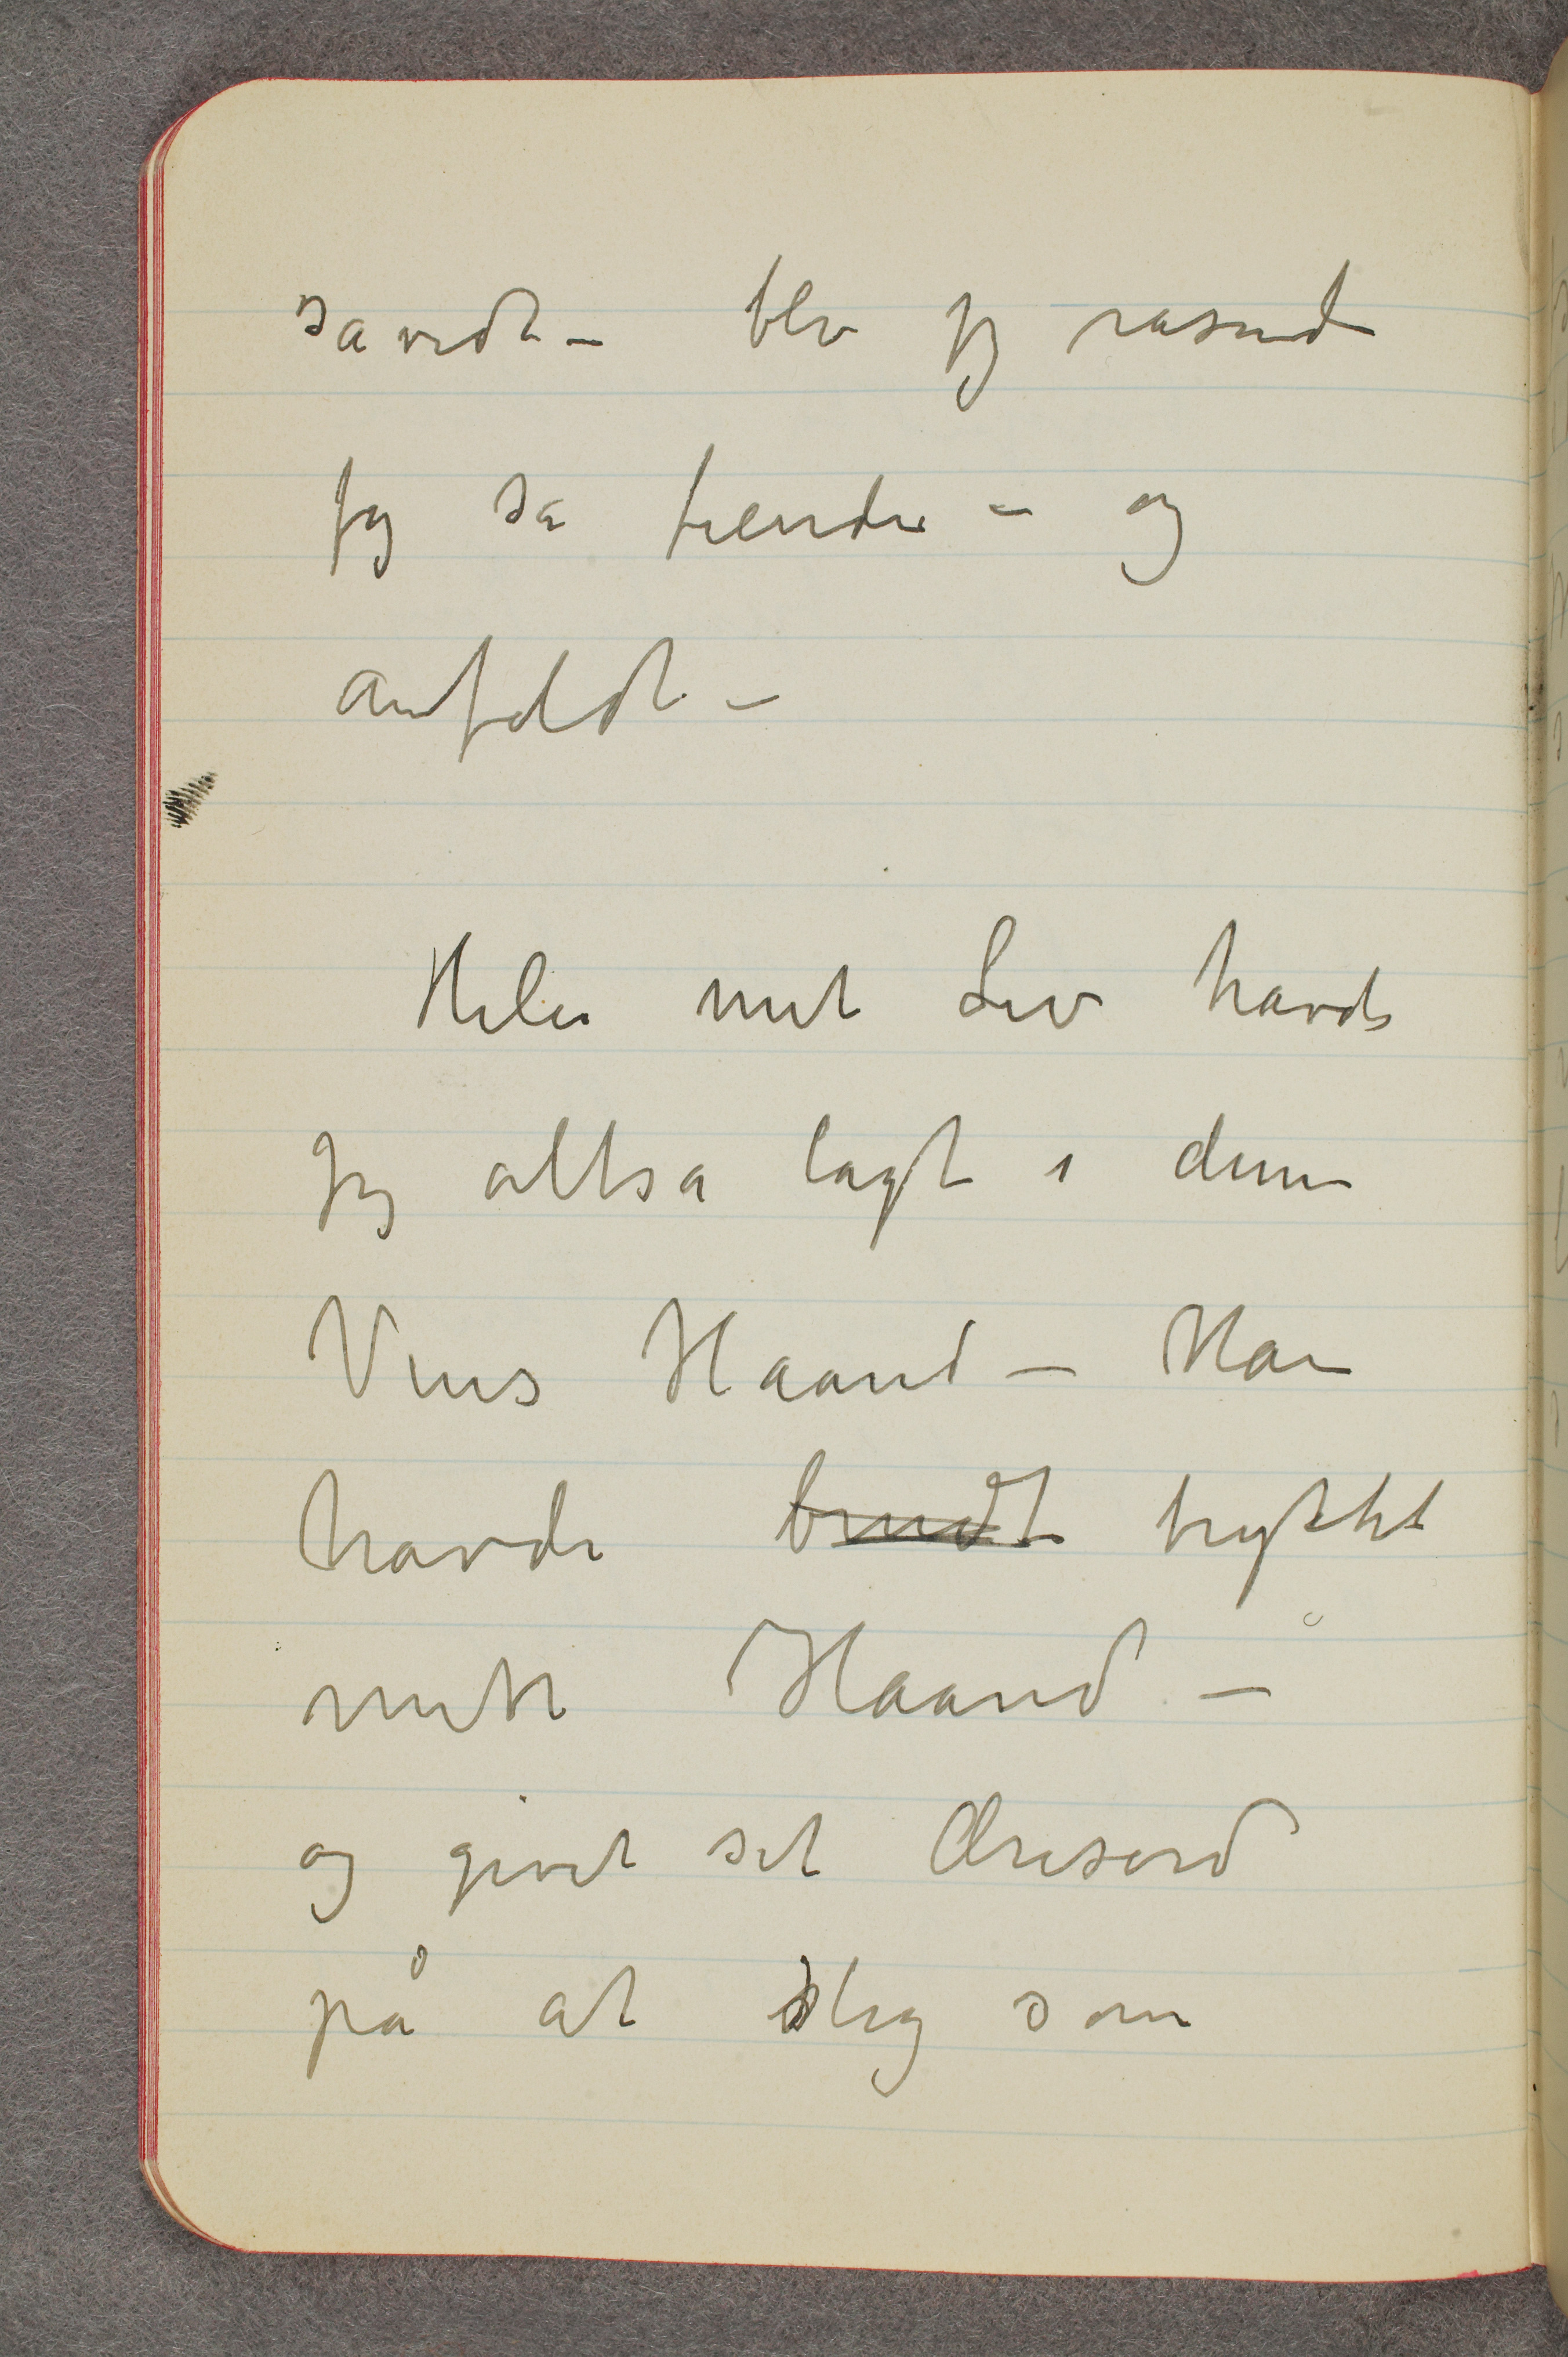 såvidt – blev jeg rasende
Jeg så fiender – og
anfaldt –
Hele mit Liv havde
jeg altså lagt i denne
Vens Haand – Han
havde brudt trykket
mitt Haand –
og givet sit Æresord
på at slig som